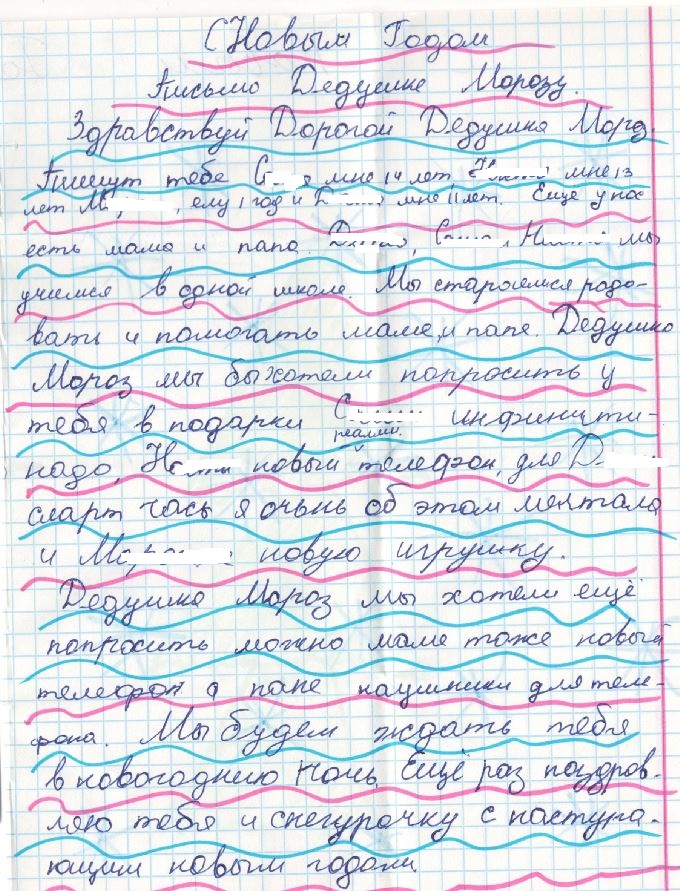 С Новым Годом
Письмо Дедушке Морозу.
Здравствуй Дорогой Дедушка Мороз.
Пишут тебе С я мне 14 лет, мне 13
лет М , ему 1 год и мне 11 лет. Еще у нас
есть мама и папа. , , мы
учимся в одной школе. Мы стараемся радо-
вать и помогать маме, и папе. Дедушка
Мороз мы бы хотели попросить у
тебя в подарки С реалми. инфинити-
надо, новый телефон, для Д
смарт часы я очень об этом мечтала
и М новую игрушку.
Дедушка Мороз мы хотели ещё
попросить можно маме тоже новый
телефон а папе наушники для теле-
фона. Мы будем ждать тебя
в новогоднюю ночь. Ещё раз поздров-
ляю тебя и снегурочку с наступа-
ющим новым годом.